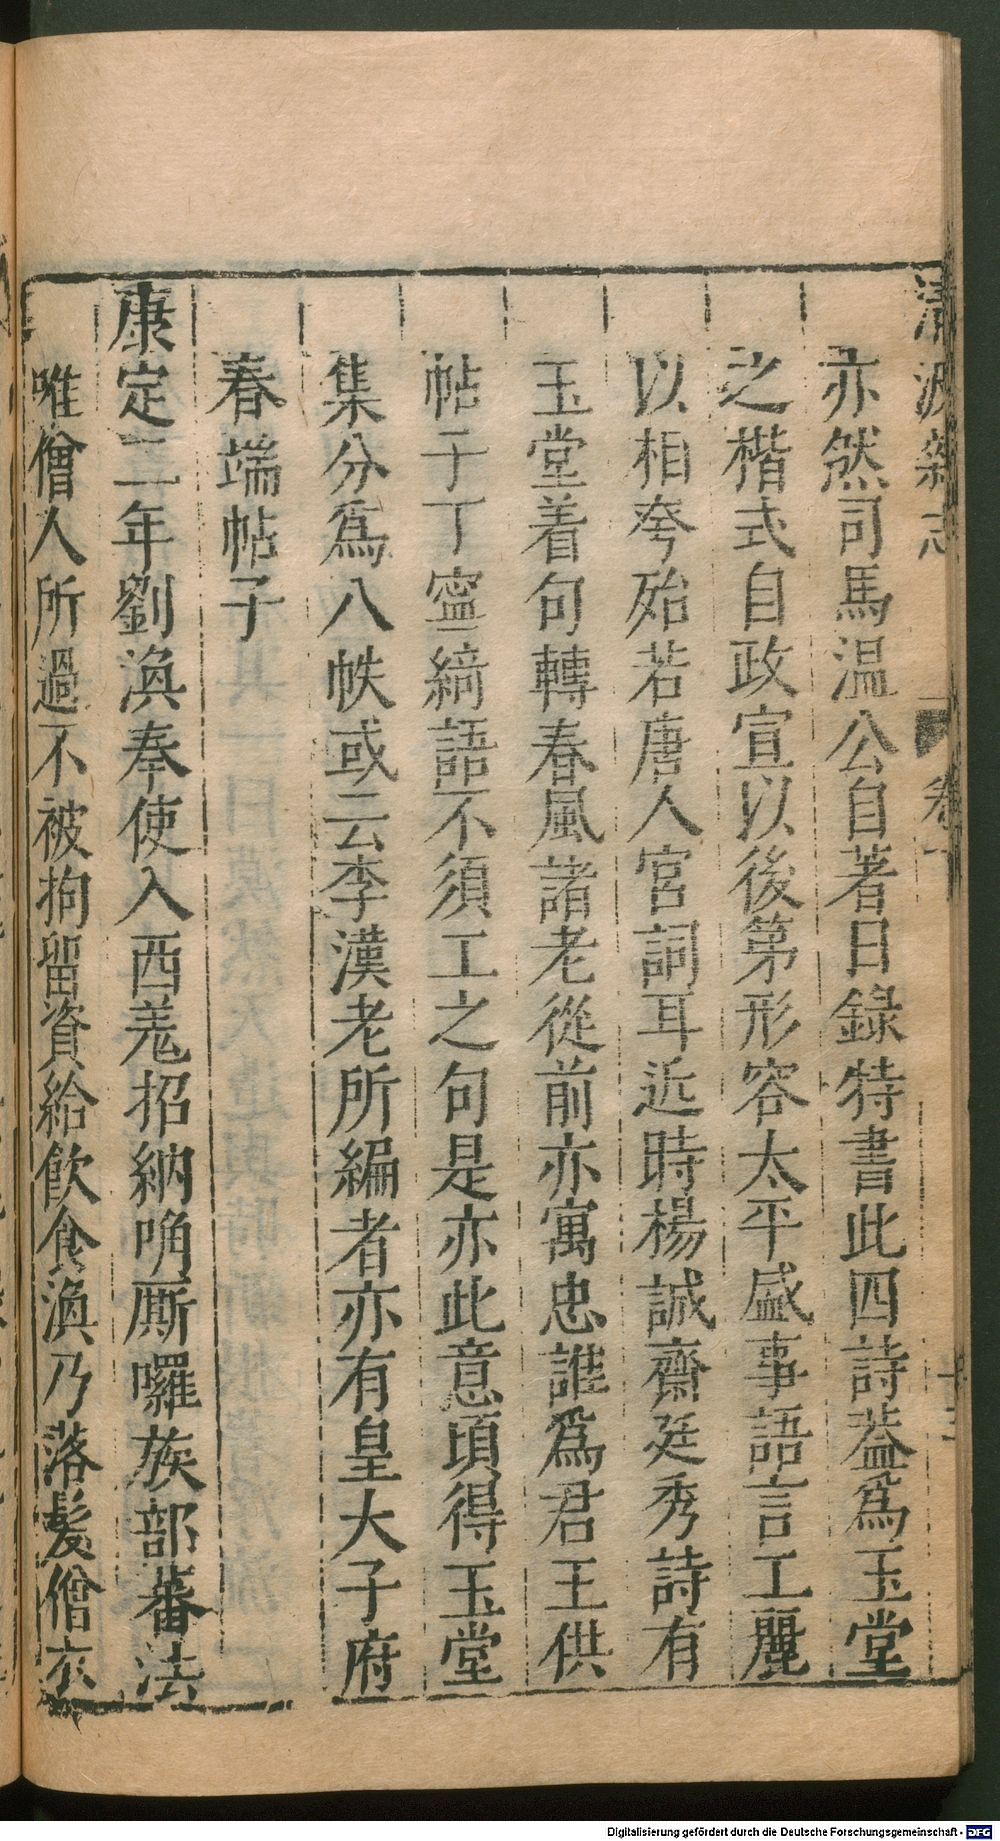 清波雜志 卷十 十三
亦然司馬温公自著日錄特書此四詩葢爲玉堂
之楷式自政宣以後第形容太平盛事語言工麗
以相夸殆若唐人宮詞耳近時楊誠齋廷秀詩有
玉堂着句轉春風諸老從前亦寓忠誰爲君王供
帖子丁寧綺語不須工之句是亦此意頃得玉堂
集分爲八帙或云李漢老所編者亦有皇大子府
春端帖子
康定二年劉渙奉使入西羌招納唃厮囉族部蕃法
唯僧人所過不被拘留資給飲食渙乃落髮僧衣
Digitalisierung gefördert durch die Deutsche Forschungsgemeinschaft - DFG